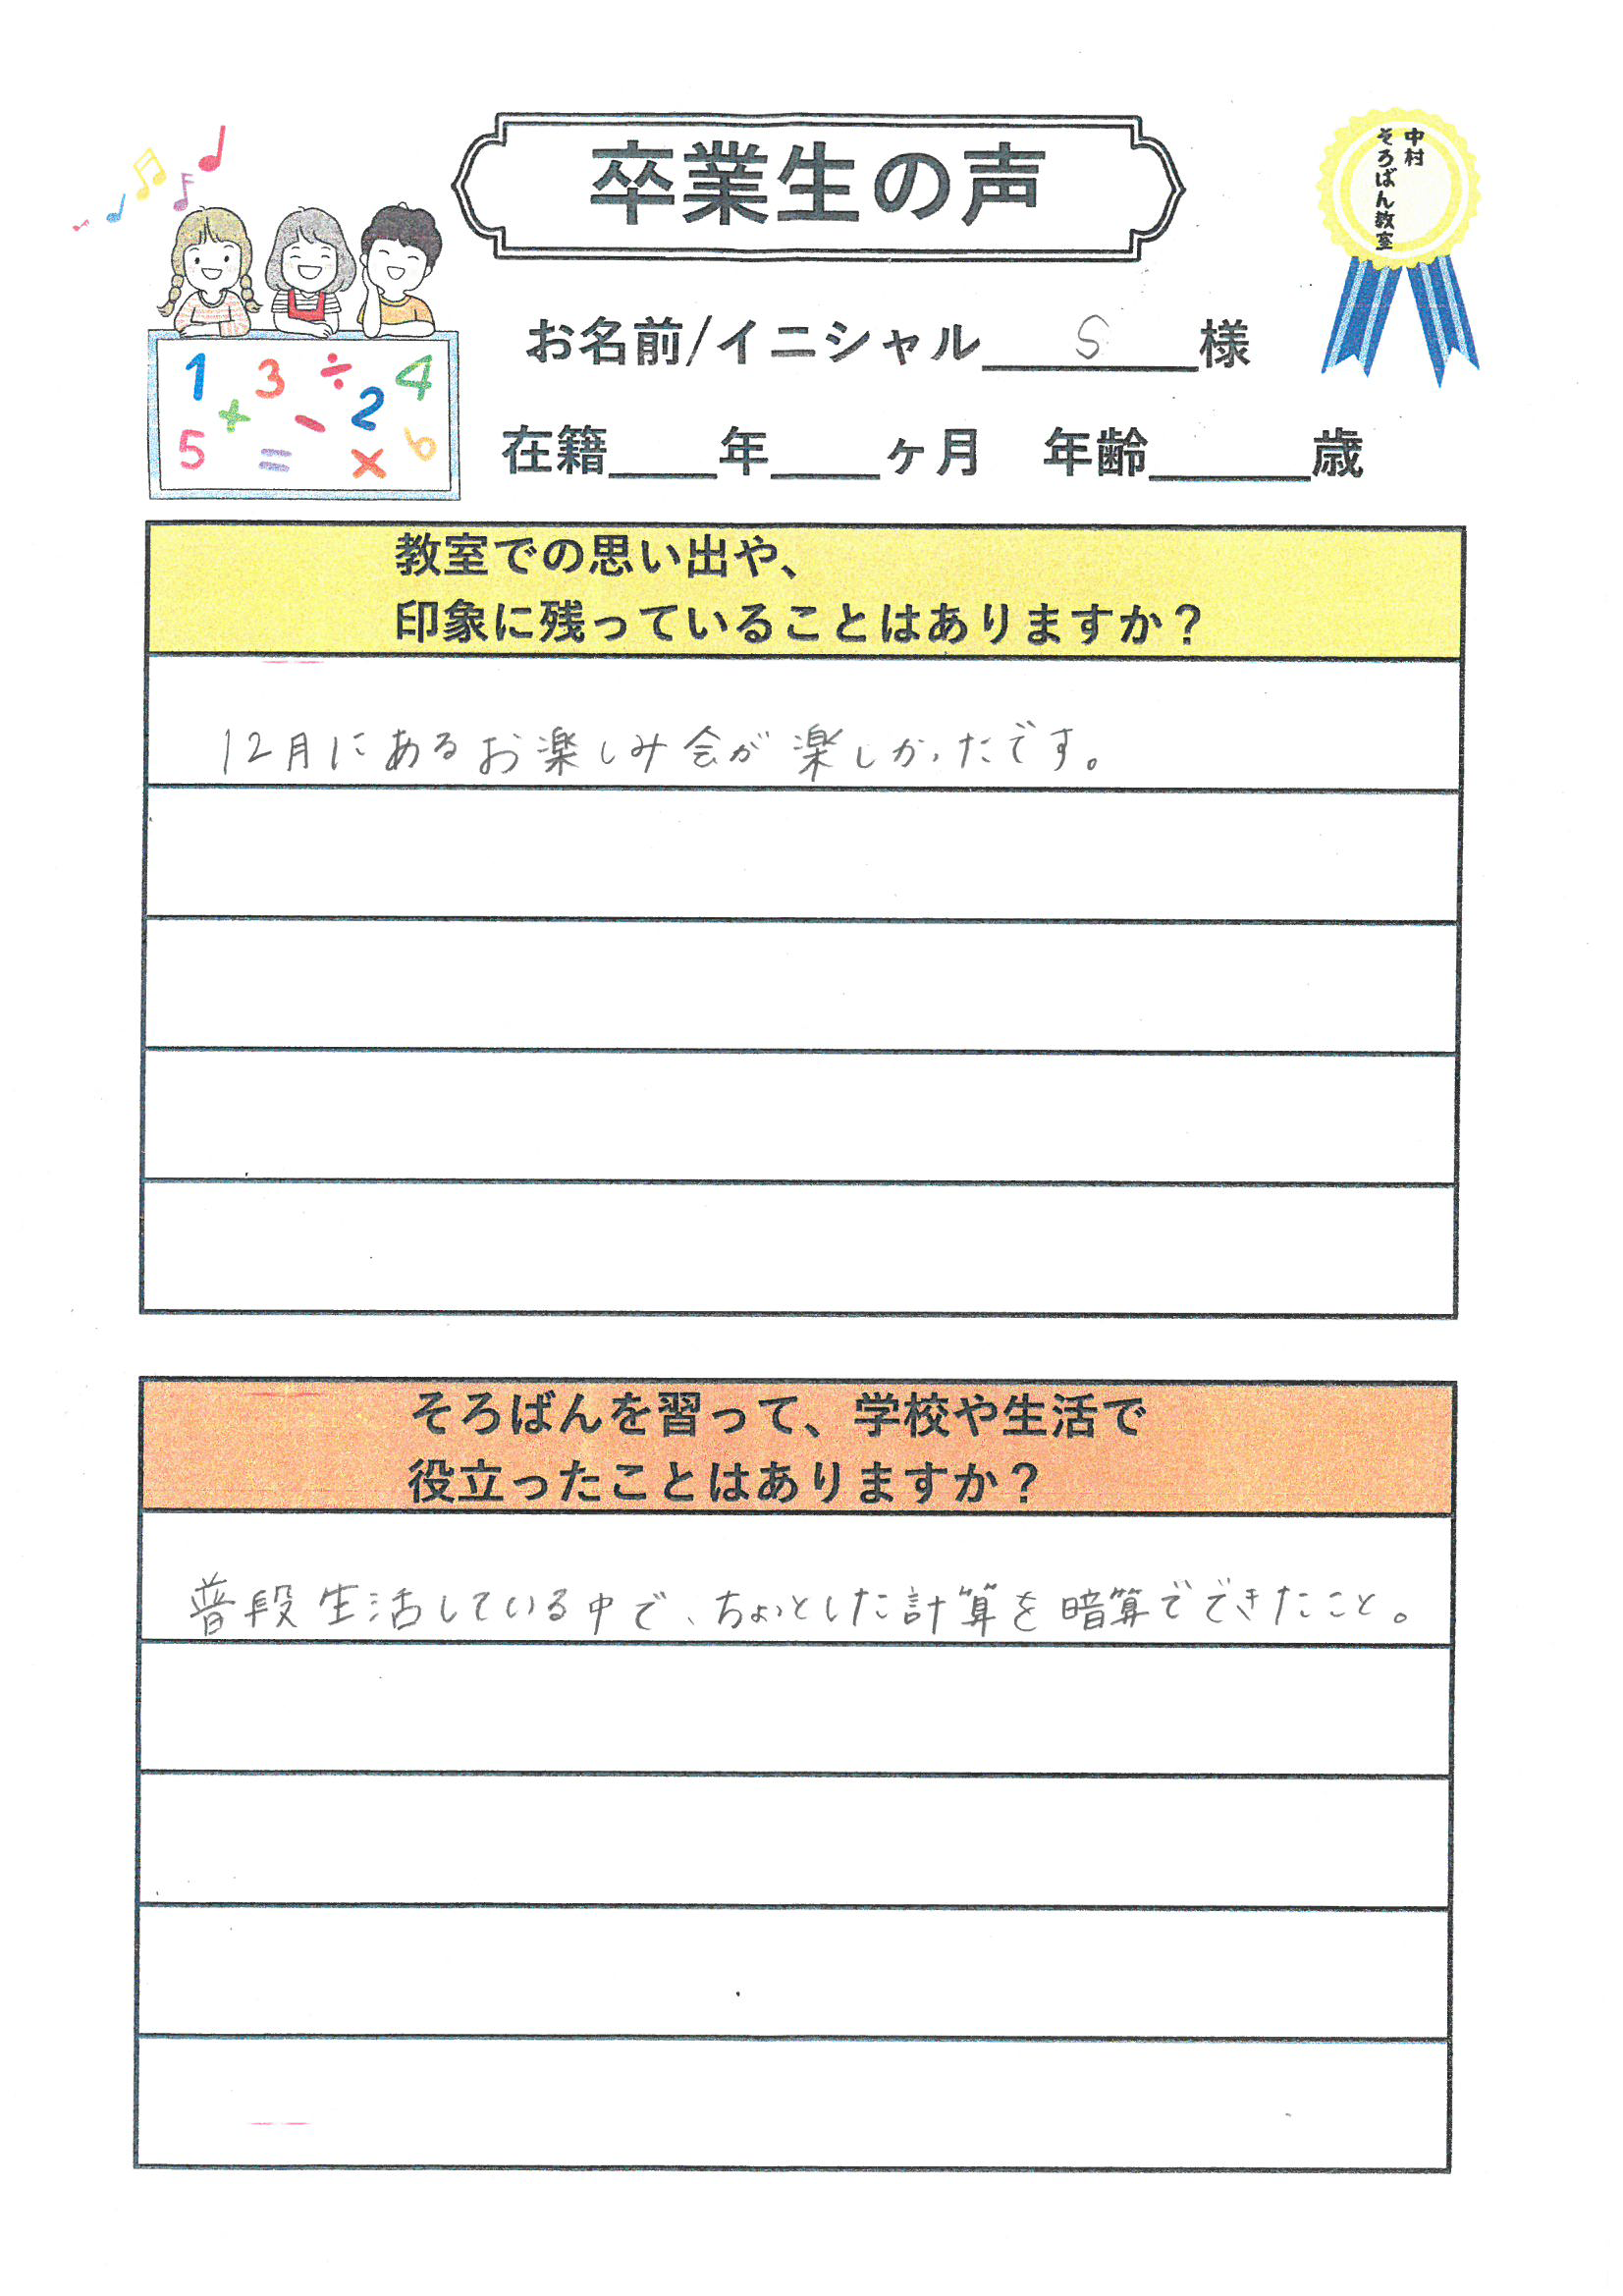 卒業生の声
中村
そろばん教室
お名前/イニシャル S 様
在籍____年____ヶ月 年齢______歳
1 3 ÷ 4
+ - 2
5 = × 6
教室での思い出や、
印象に残っていることはありますか？
12月にあるお楽しみ会が楽しかったです。
そろばんを習って、学校や生活で
役立ったことはありますか？
普段生活している中で、ちょっとした計算を暗算でできたこと。